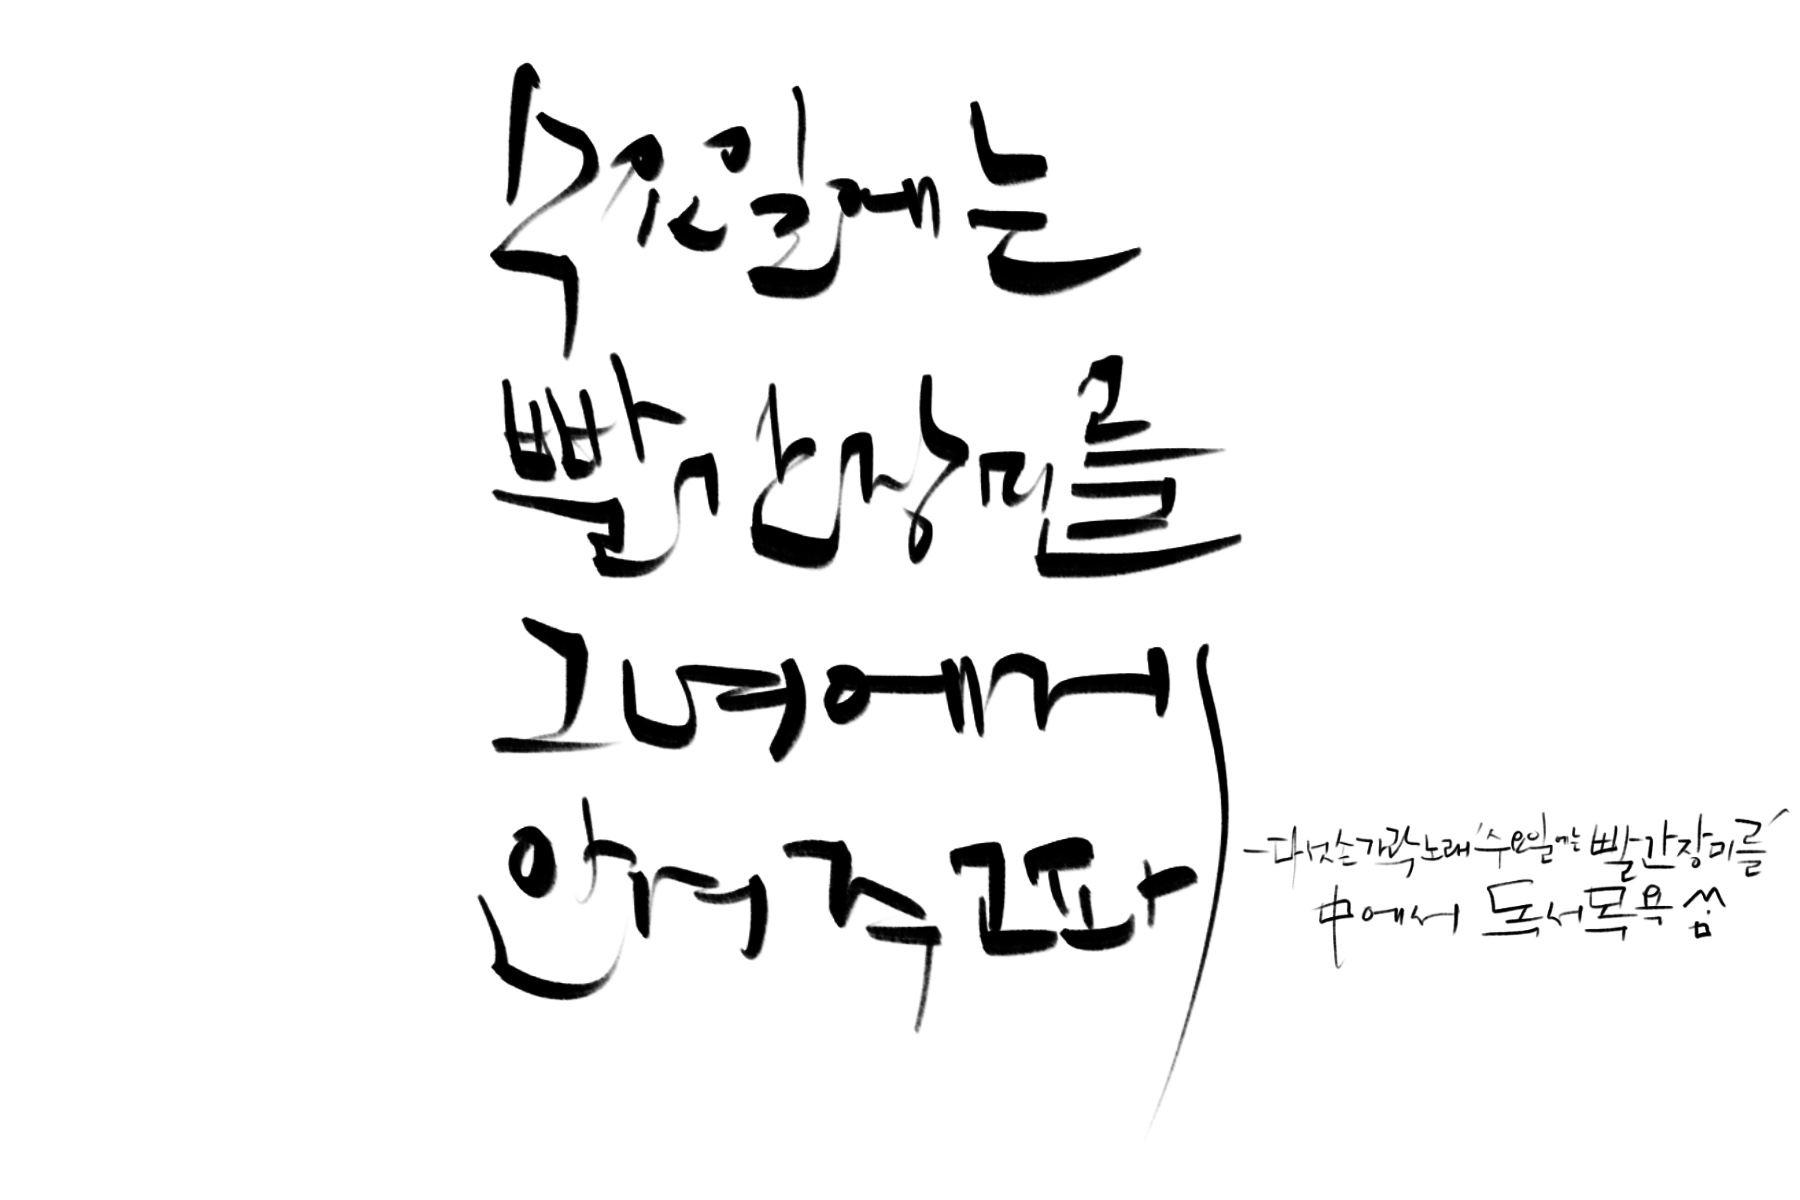 수요일에는
빨간 장미를
그녀에게
안겨 주고파
- 다섯손가락 노래 '수요일에는 빨간 장미를'
中에서 독서목욕 씀